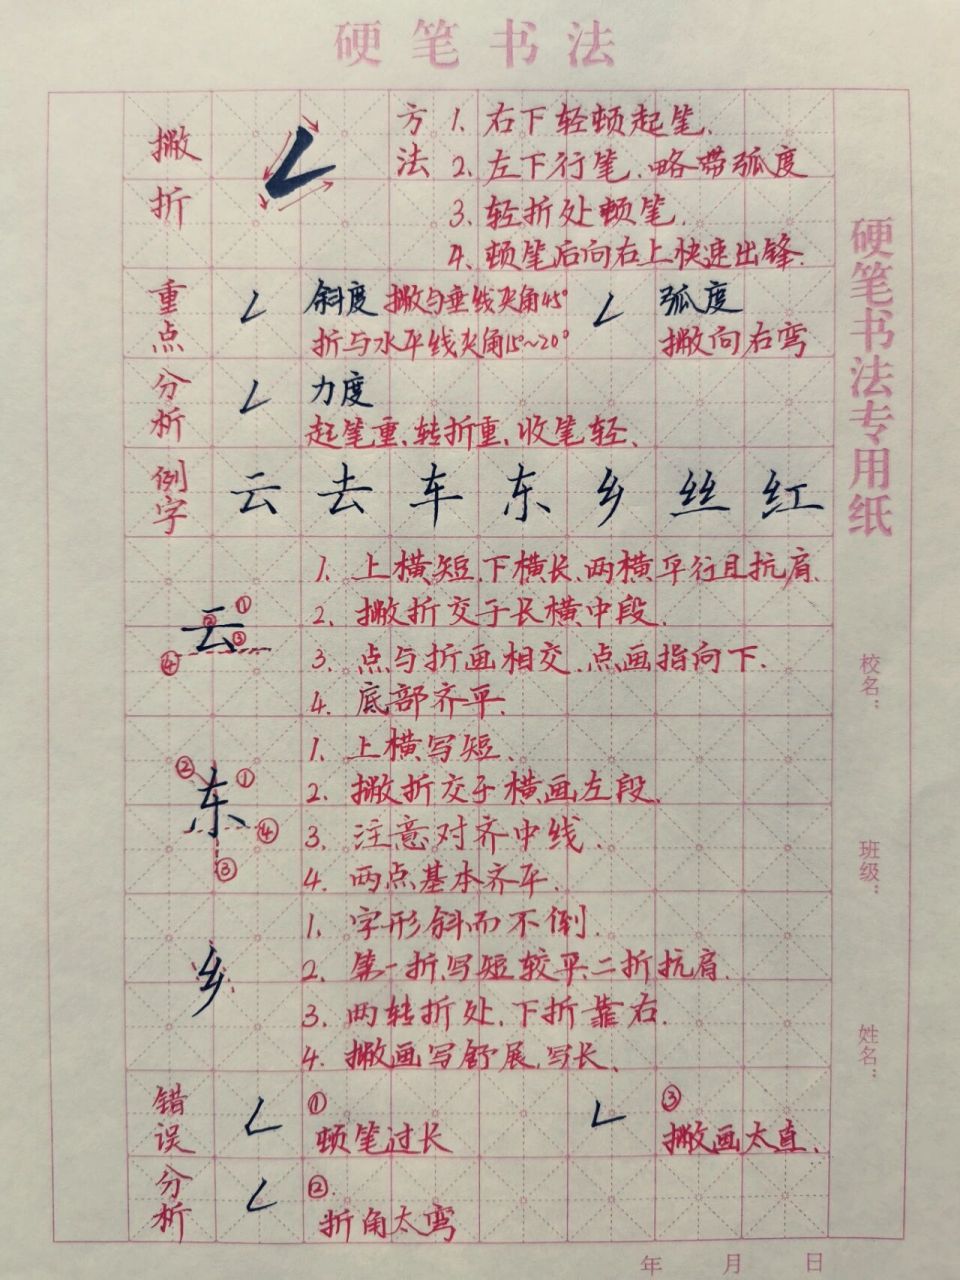 硬笔书法
撇折
方法
1. 右下轻顿起笔.
2. 左下行笔、略带弧度
3. 轻折处顿笔.
4. 顿笔后向右上快速出锋.
重点分析
斜度 撇与垂线夹角45°
折与水平线夹角15°~20°
弧度
撇向右弯
力度
起笔重、转折重、收笔轻、
例字
云 去 车 东 乡 丝 红
云
① ② ③ ④
1. 上横短、下横长、两横平行且抗肩.
2. 撇折交于长横中段.
3. 点与折画相交、点画指向下.
4. 底部齐平.
东
① ② ③ ④
1. 上横写短.
2. 撇折交于横画左段.
3. 注意对齐中线.
4. 两点基本齐平.
乡
1. 字形斜而不倒.
2. 第一折、写短较平、二折抗肩.
3. 两转折处、下折靠右.
4. 撇画写舒展、写长、
错误分析
①
顿笔过长
③
撇画太直.
②.
折角太弯
硬笔书法专用纸
校名：
班级：
姓名：
年 月 日